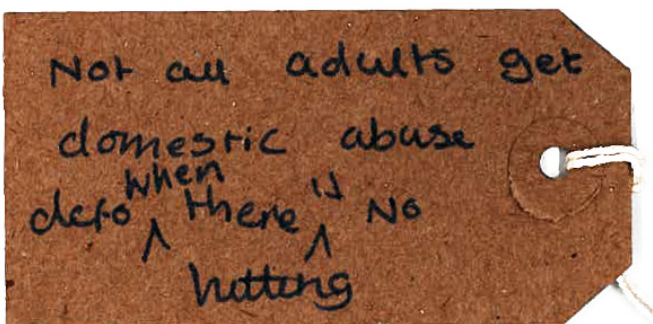 Not all adults get
domestic abuse
defo when there is No
hitting